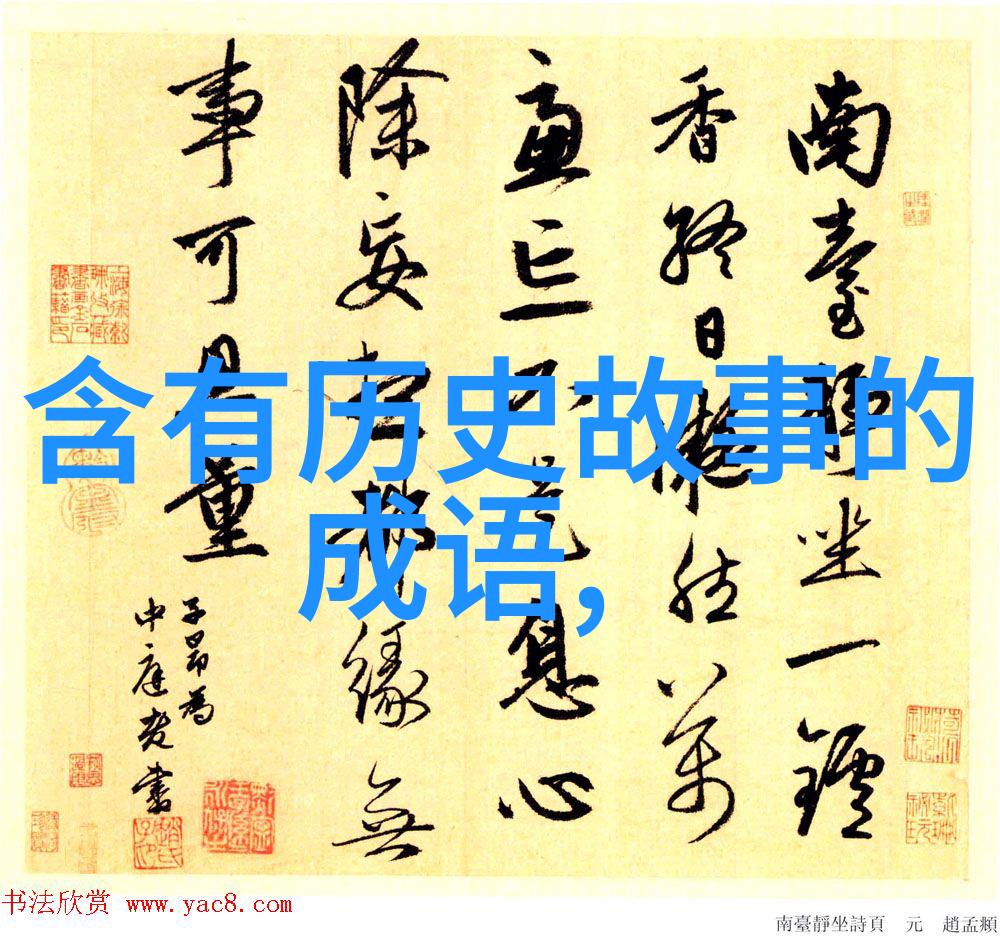 含有历史故事的
成语,
南臺靜坐一鑪
香終日凝然萬
慮亡不是息心
除妄想都緣無
事可思量
子昂為
中庭老書
书法欣赏 www.yac8.com
南臺靜坐詩頁 元 趙孟頫